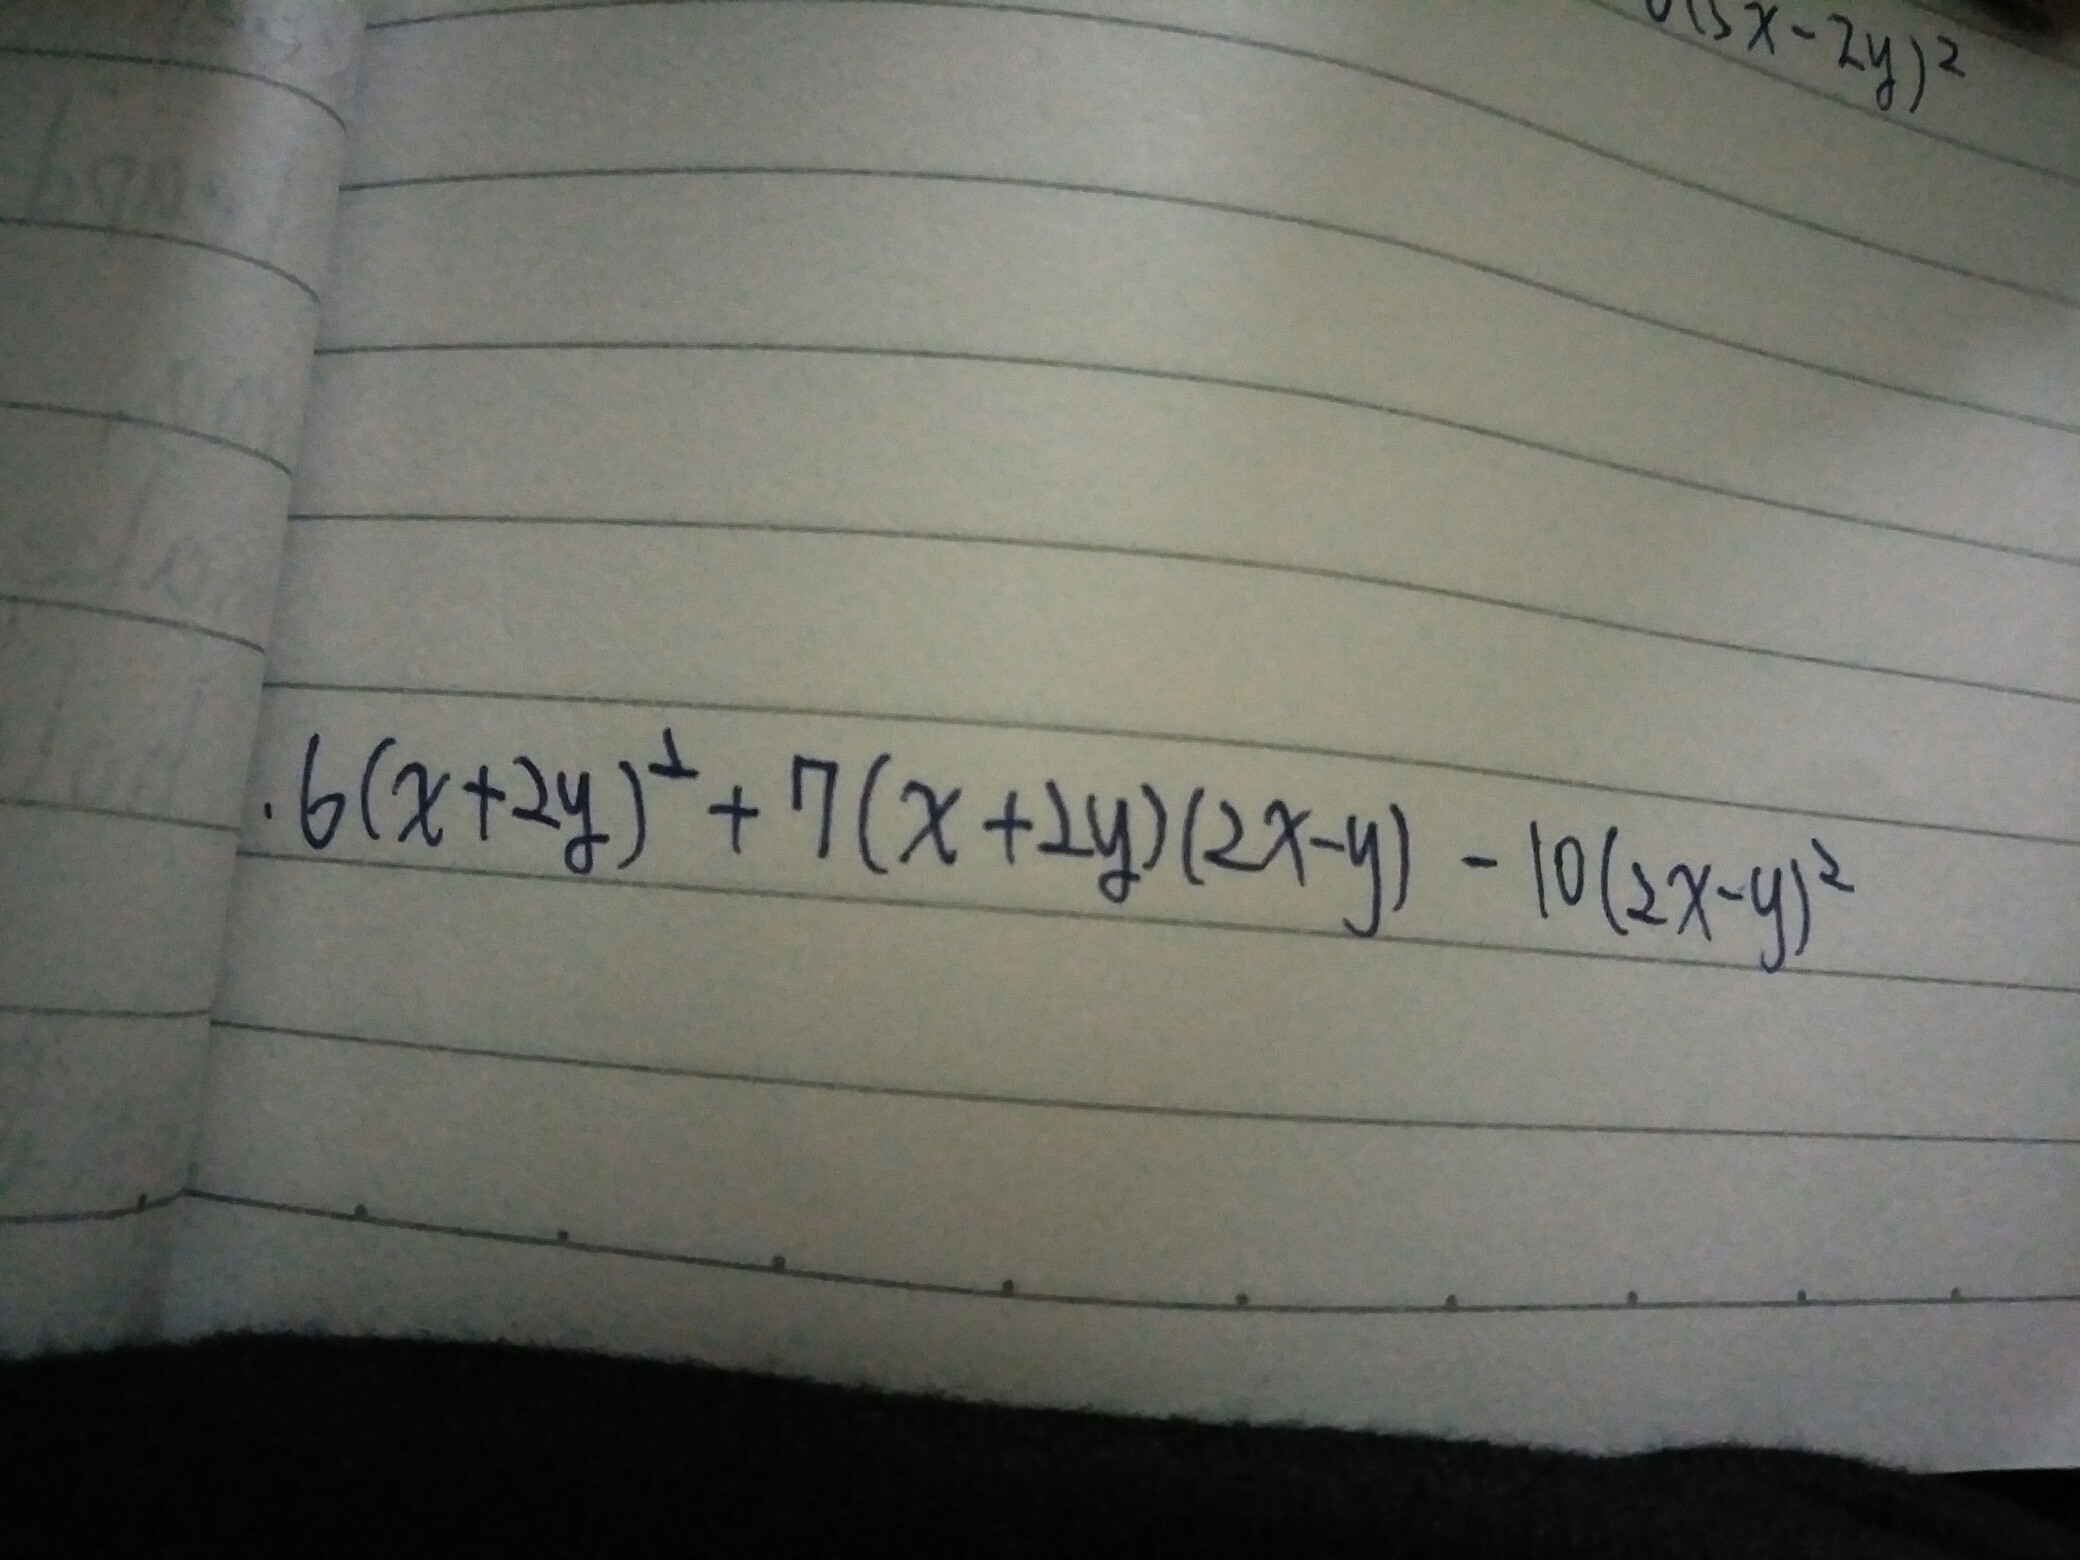 (3x-2y)²
.6(x+2y)² + 7(x+2y)(2x-y) - 10(2x-y)²